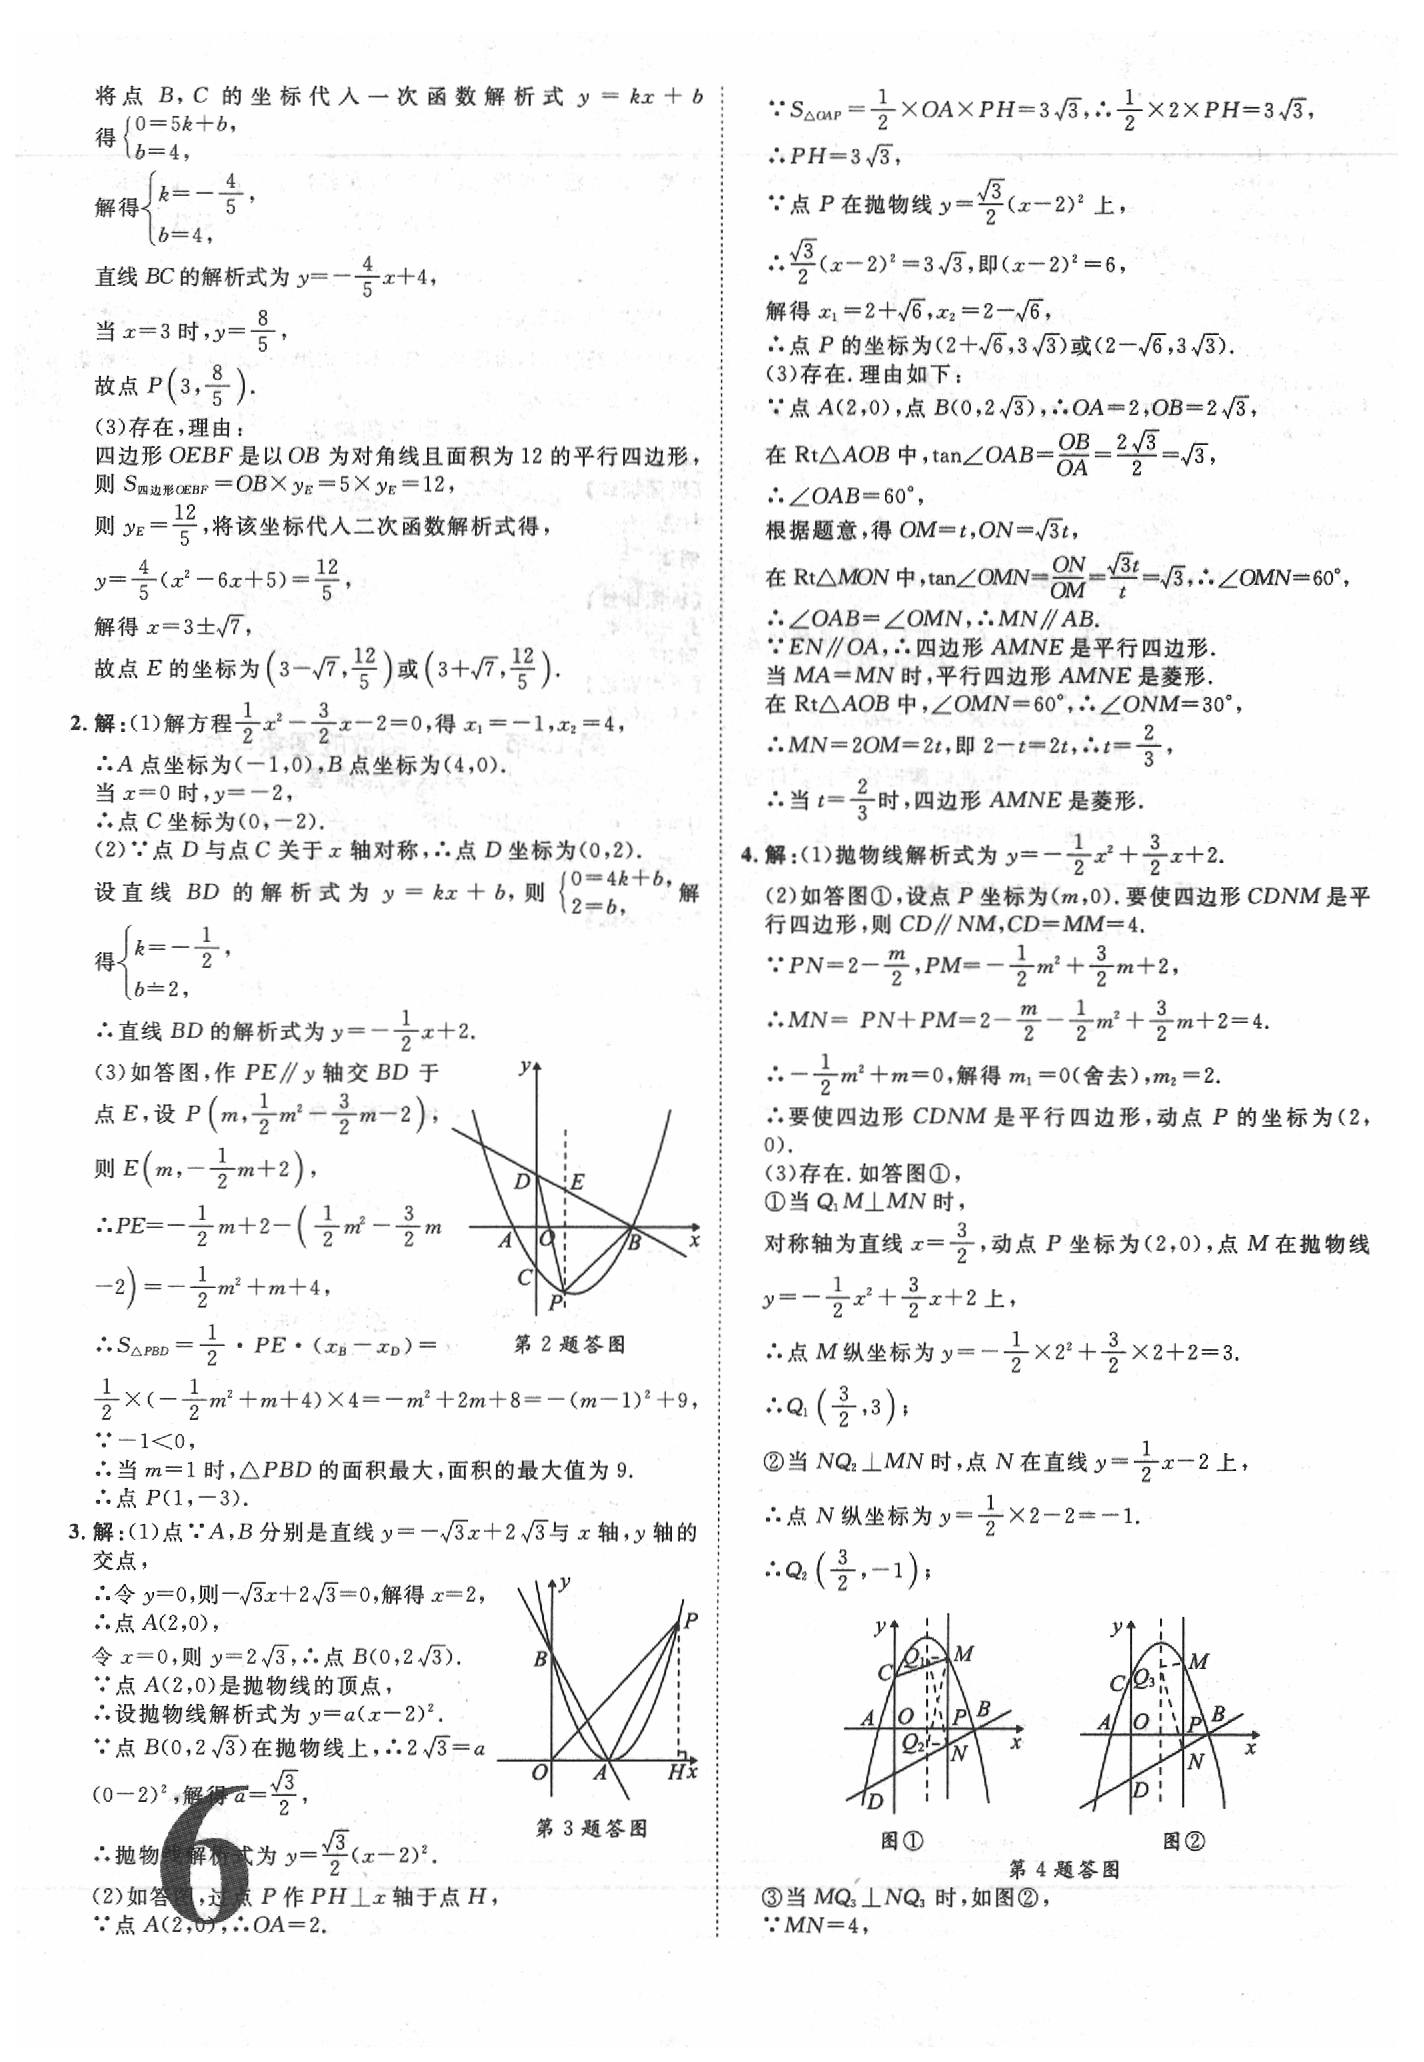 将点 B,C 的坐标代入一次函数解析式 y=kx+b
得{0=5k+b,
b=4,
解得{k=-4/5,
b=4,
直线BC的解析式为y=-4/5x+4,
当x=3时,y=8/5,
故点P(3,8/5).
(3)存在,理由:
四边形OEBF是以OB为对角线且面积为12的平行四边形,
则S四边形OEBF=OB×yE=5×yE=12,
则yE=12/5,将该坐标代入二次函数解析式得,
y=4/5(x²-6x+5)=12/5,
解得x=3±√7,
故点E的坐标为(3-√7,12/5)或(3+√7,12/5).
2.解:(1)解方程1/2x²-3/2x-2=0,得x₁=-1,x₂=4,
∴A点坐标为(-1,0),B点坐标为(4,0).
当x=0时,y=-2,
∴点C坐标为(0,-2).
(2)∵点D与点C关于x轴对称,∴点D坐标为(0,2).
设直线BD的解析式为y=kx+b,则{0=4k+b,2=b,解
得{k=-1/2,
b=2,
∴直线BD的解析式为y=-1/2x+2.
(3)如答图,作PE∥y轴交BD于
点E,设P(m,1/2m²-3/2m-2),
则E(m,-1/2m+2),
∴PE=-1/2m+2-(1/2m²-3/2m
-2)=-1/2m²+m+4,
∴S△PBD=1/2·PE·(xB-xD)=
y
D
E
A
O
B
x
C
P
第2题答图
1/2×(-1/2m²+m+4)×4=-m²+2m+8=-(m-1)²+9,
∵-1<0,
∴当m=1时,△PBD的面积最大,面积的最大值为9.
∴点P(1,-3).
3.解:(1)点∵A,B分别是直线y=-√3x+2√3与x轴,y轴的
交点,
∴令y=0,则-√3x+2√3=0,解得x=2,
∴点A(2,0),
令x=0,则y=2√3,∴点B(0,2√3).
∵点A(2,0)是抛物线的顶点,
∴设抛物线解析式为y=a(x-2)².
∵点B(0,2√3)在抛物线上,∴2√3=a
(0-2)²,解得a=√3/2,
∴抛物线解析式为y=√3/2(x-2)².
y
P
B
O
A
H
x
第3题答图
(2)如答图,过点P作PH⊥x轴于点H,
∵点A(2,0),∴OA=2.
6
∵S△OAP=1/2×OA×PH=3√3,∴1/2×2×PH=3√3,
∴PH=3√3,
∵点P在抛物线y=√3/2(x-2)²上,
∴√3/2(x-2)²=3√3,即(x-2)²=6,
解得x₁=2+√6,x₂=2-√6,
∴点P的坐标为(2+√6,3√3)或(2-√6,3√3).
(3)存在.理由如下:
∵点A(2,0),点B(0,2√3),∴OA=2,OB=2√3,
在Rt△AOB中,tan∠OAB=OB/OA=2√3/2=√3,
∴∠OAB=60°,
根据题意,得OM=t,ON=√3t,
在Rt△MON中,tan∠OMN=ON/OM=√3t/t=√3,∴∠OMN=60°,
∴∠OAB=∠OMN,∴MN∥AB.
∵EN∥OA,∴四边形AMNE是平行四边形.
当MA=MN时,平行四边形AMNE是菱形.
在Rt△AOB中,∠OMN=60°,∴∠ONM=30°,
∴MN=2OM=2t,即2-t=2t,∴t=2/3,
∴当t=2/3时,四边形AMNE是菱形.
4.解:(1)抛物线解析式为y=-1/2x²+3/2x+2.
(2)如答图①,设点P坐标为(m,0).要使四边形CDNM是平
行四边形,则CD∥NM,CD=MM=4.
∵PN=2-m/2,PM=-1/2m²+3/2m+2,
∴MN= PN+PM=2-m/2-1/2m²+3/2m+2=4.
∴-1/2m²+m=0,解得m₁=0(舍去),m₂=2.
∴要使四边形CDNM是平行四边形,动点P的坐标为(2,
0).
(3)存在.如答图①,
①当Q₁M⊥MN时,
对称轴为直线x=3/2,动点P坐标为(2,0),点M在抛物线
y=-1/2x²+3/2x+2上,
∴点M纵坐标为y=-1/2×2²+3/2×2+2=3.
∴Q₁(3/2,3);
②当NQ₂⊥MN时,点N在直线y=1/2x-2上,
∴点N纵坐标为y=1/2×2-2=-1.
∴Q₂(3/2,-1);
y
Q₁
M
C
A
O
P
B
x
Q₂
N
D
图①
y
M
C
Q₃
A
O
P
B
x
N
D
图②
第4题答图
③当MQ₃⊥NQ₃时,如图②,
∵MN=4,